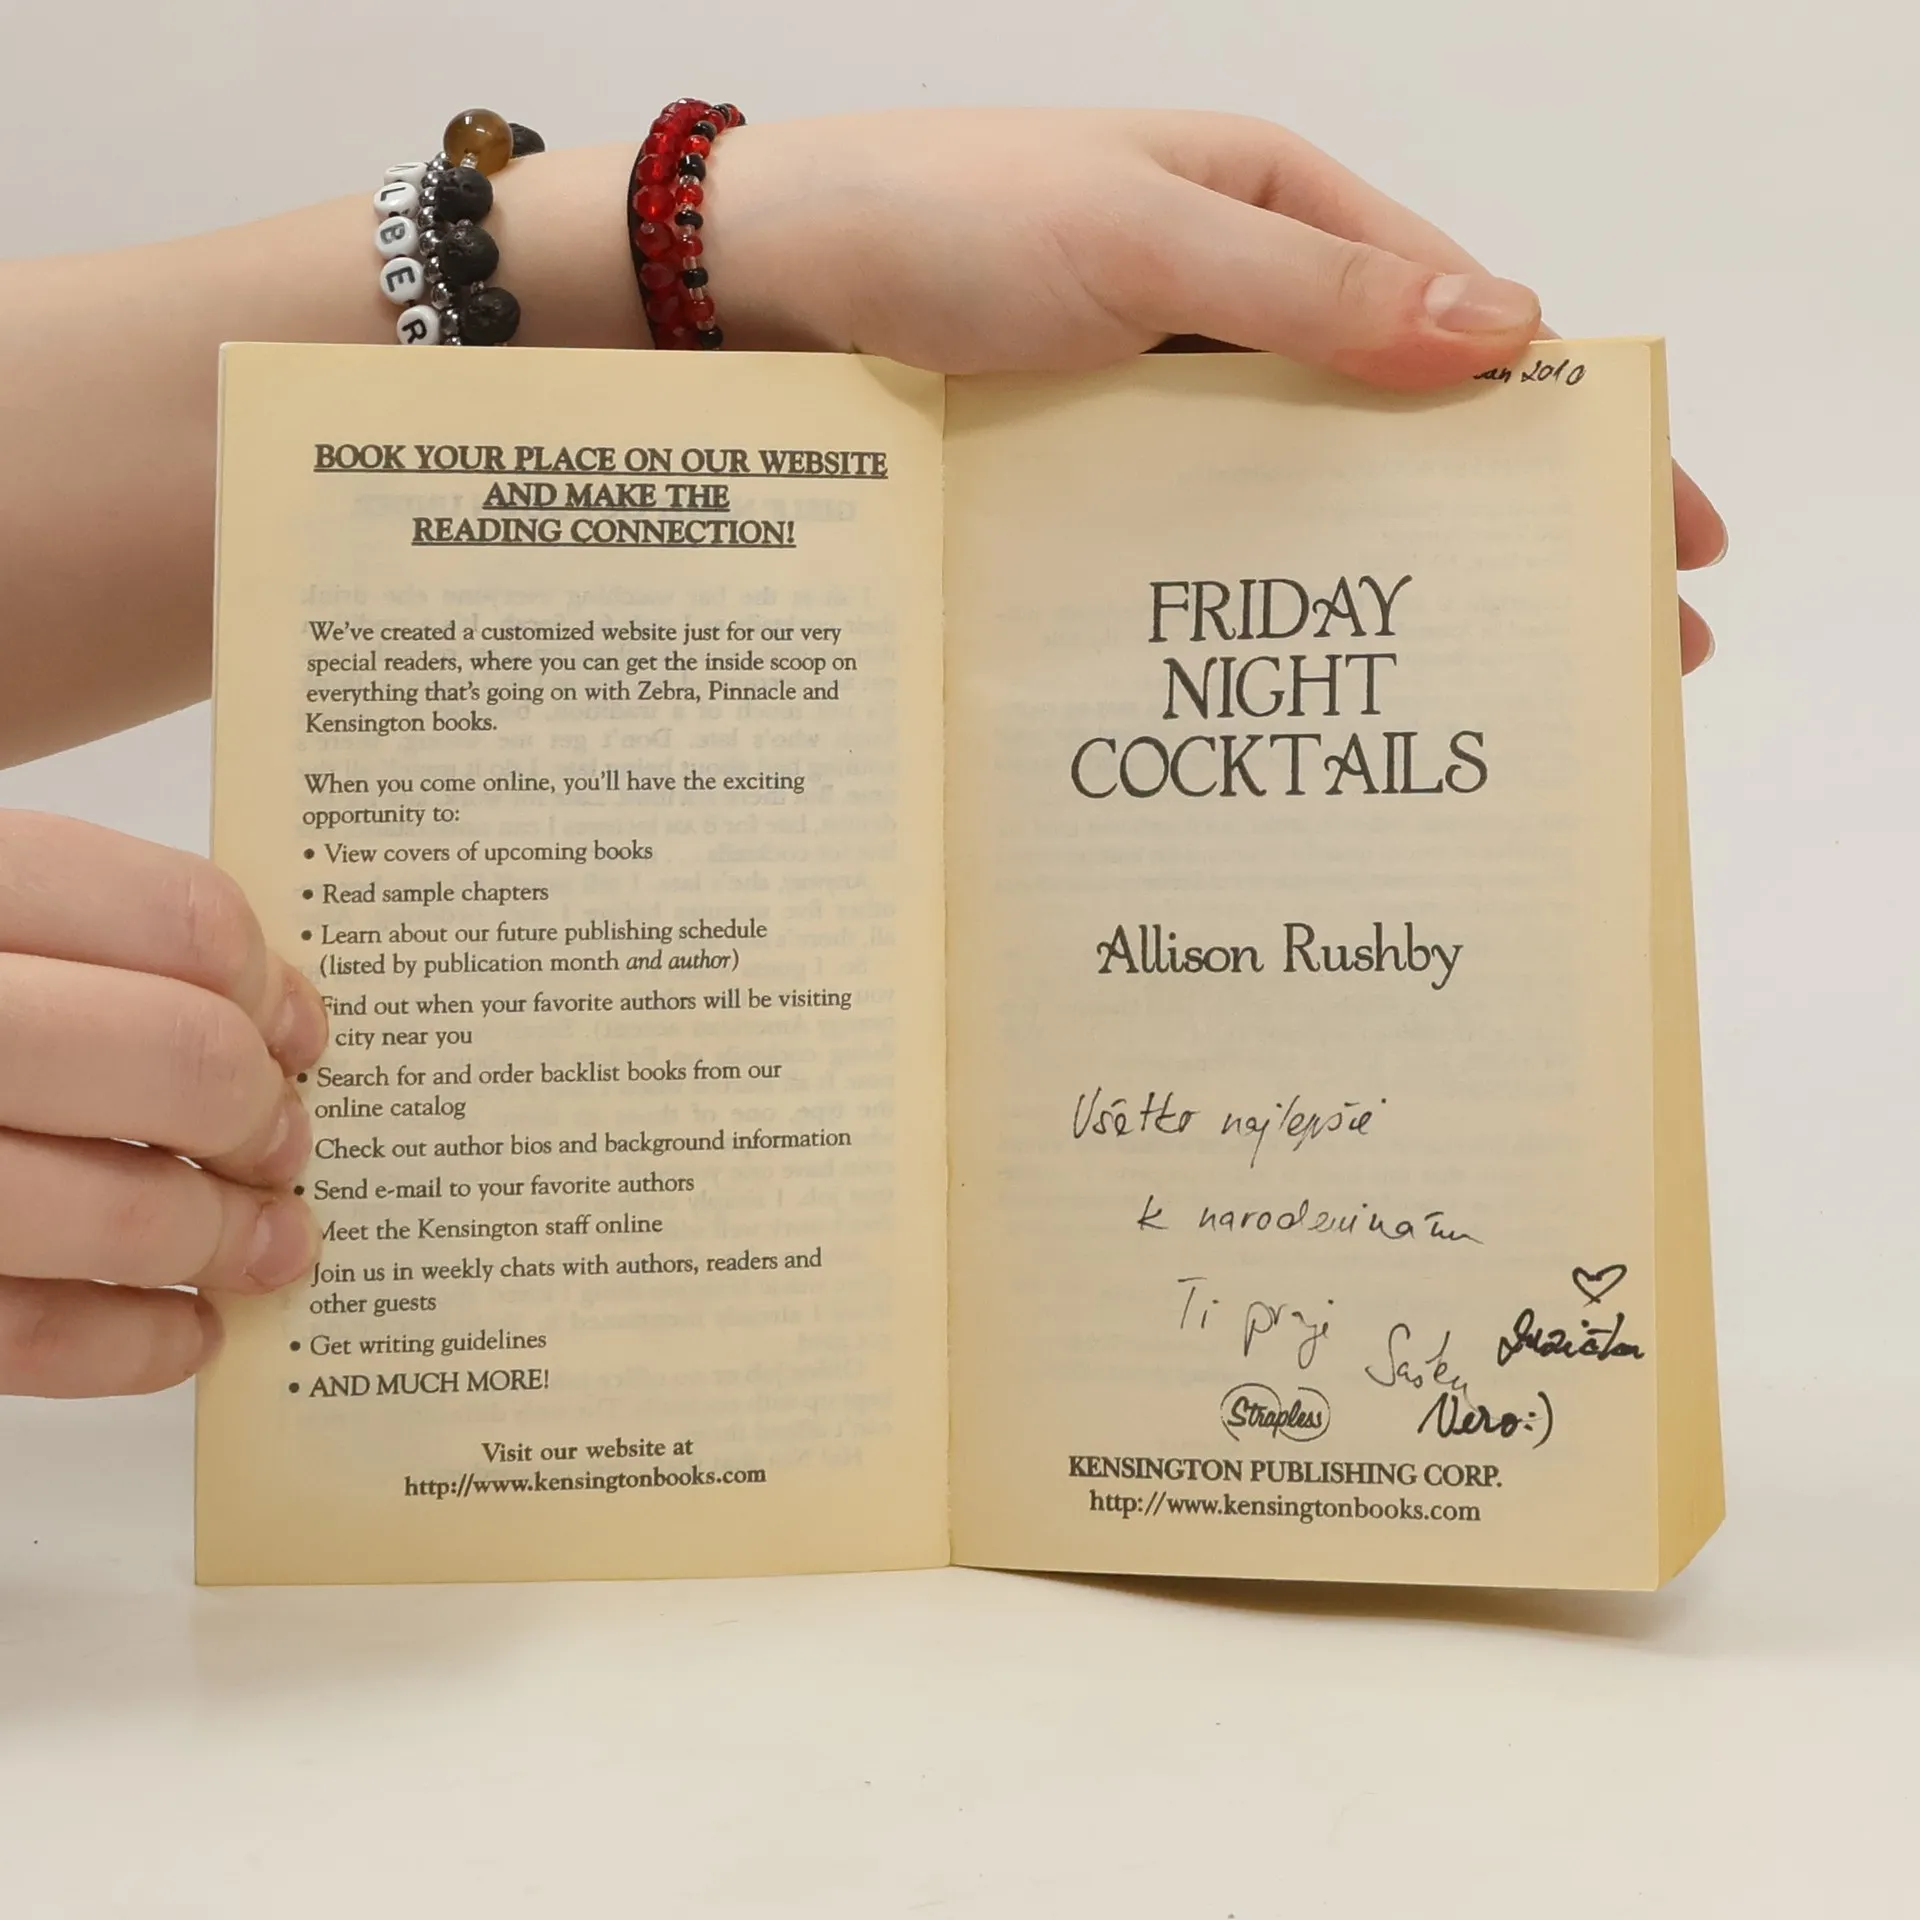 ALBER
an 2010
BOOK YOUR PLACE ON OUR WEBSITE
AND MAKE THE
READING CONNECTION!
We've created a customized website just for our very
special readers, where you can get the inside scoop on
everything that's going on with Zebra, Pinnacle and
Kensington books.
When you come online, you'll have the exciting
opportunity to:
• View covers of upcoming books
• Read sample chapters
• Learn about our future publishing schedule
(listed by publication month and author)
Find out when your favorite authors will be visiting
city near you
• Search for and order backlist books from our
online catalog
Check out author bios and background information
• Send e-mail to your favorite authors
Meet the Kensington staff online
Join us in weekly chats with authors, readers and
other guests
• Get writing guidelines
• AND MUCH MORE!
Visit our website at
http://www.kensingtonbooks.com
FRIDAY
NIGHT
COCKTAILS
Allison Rushby
Všetko najlepšie
k narodeninám
Ti praje
Vero:)
Strapless
KENSINGTON PUBLISHING CORP.
http://www.kensingtonbooks.com